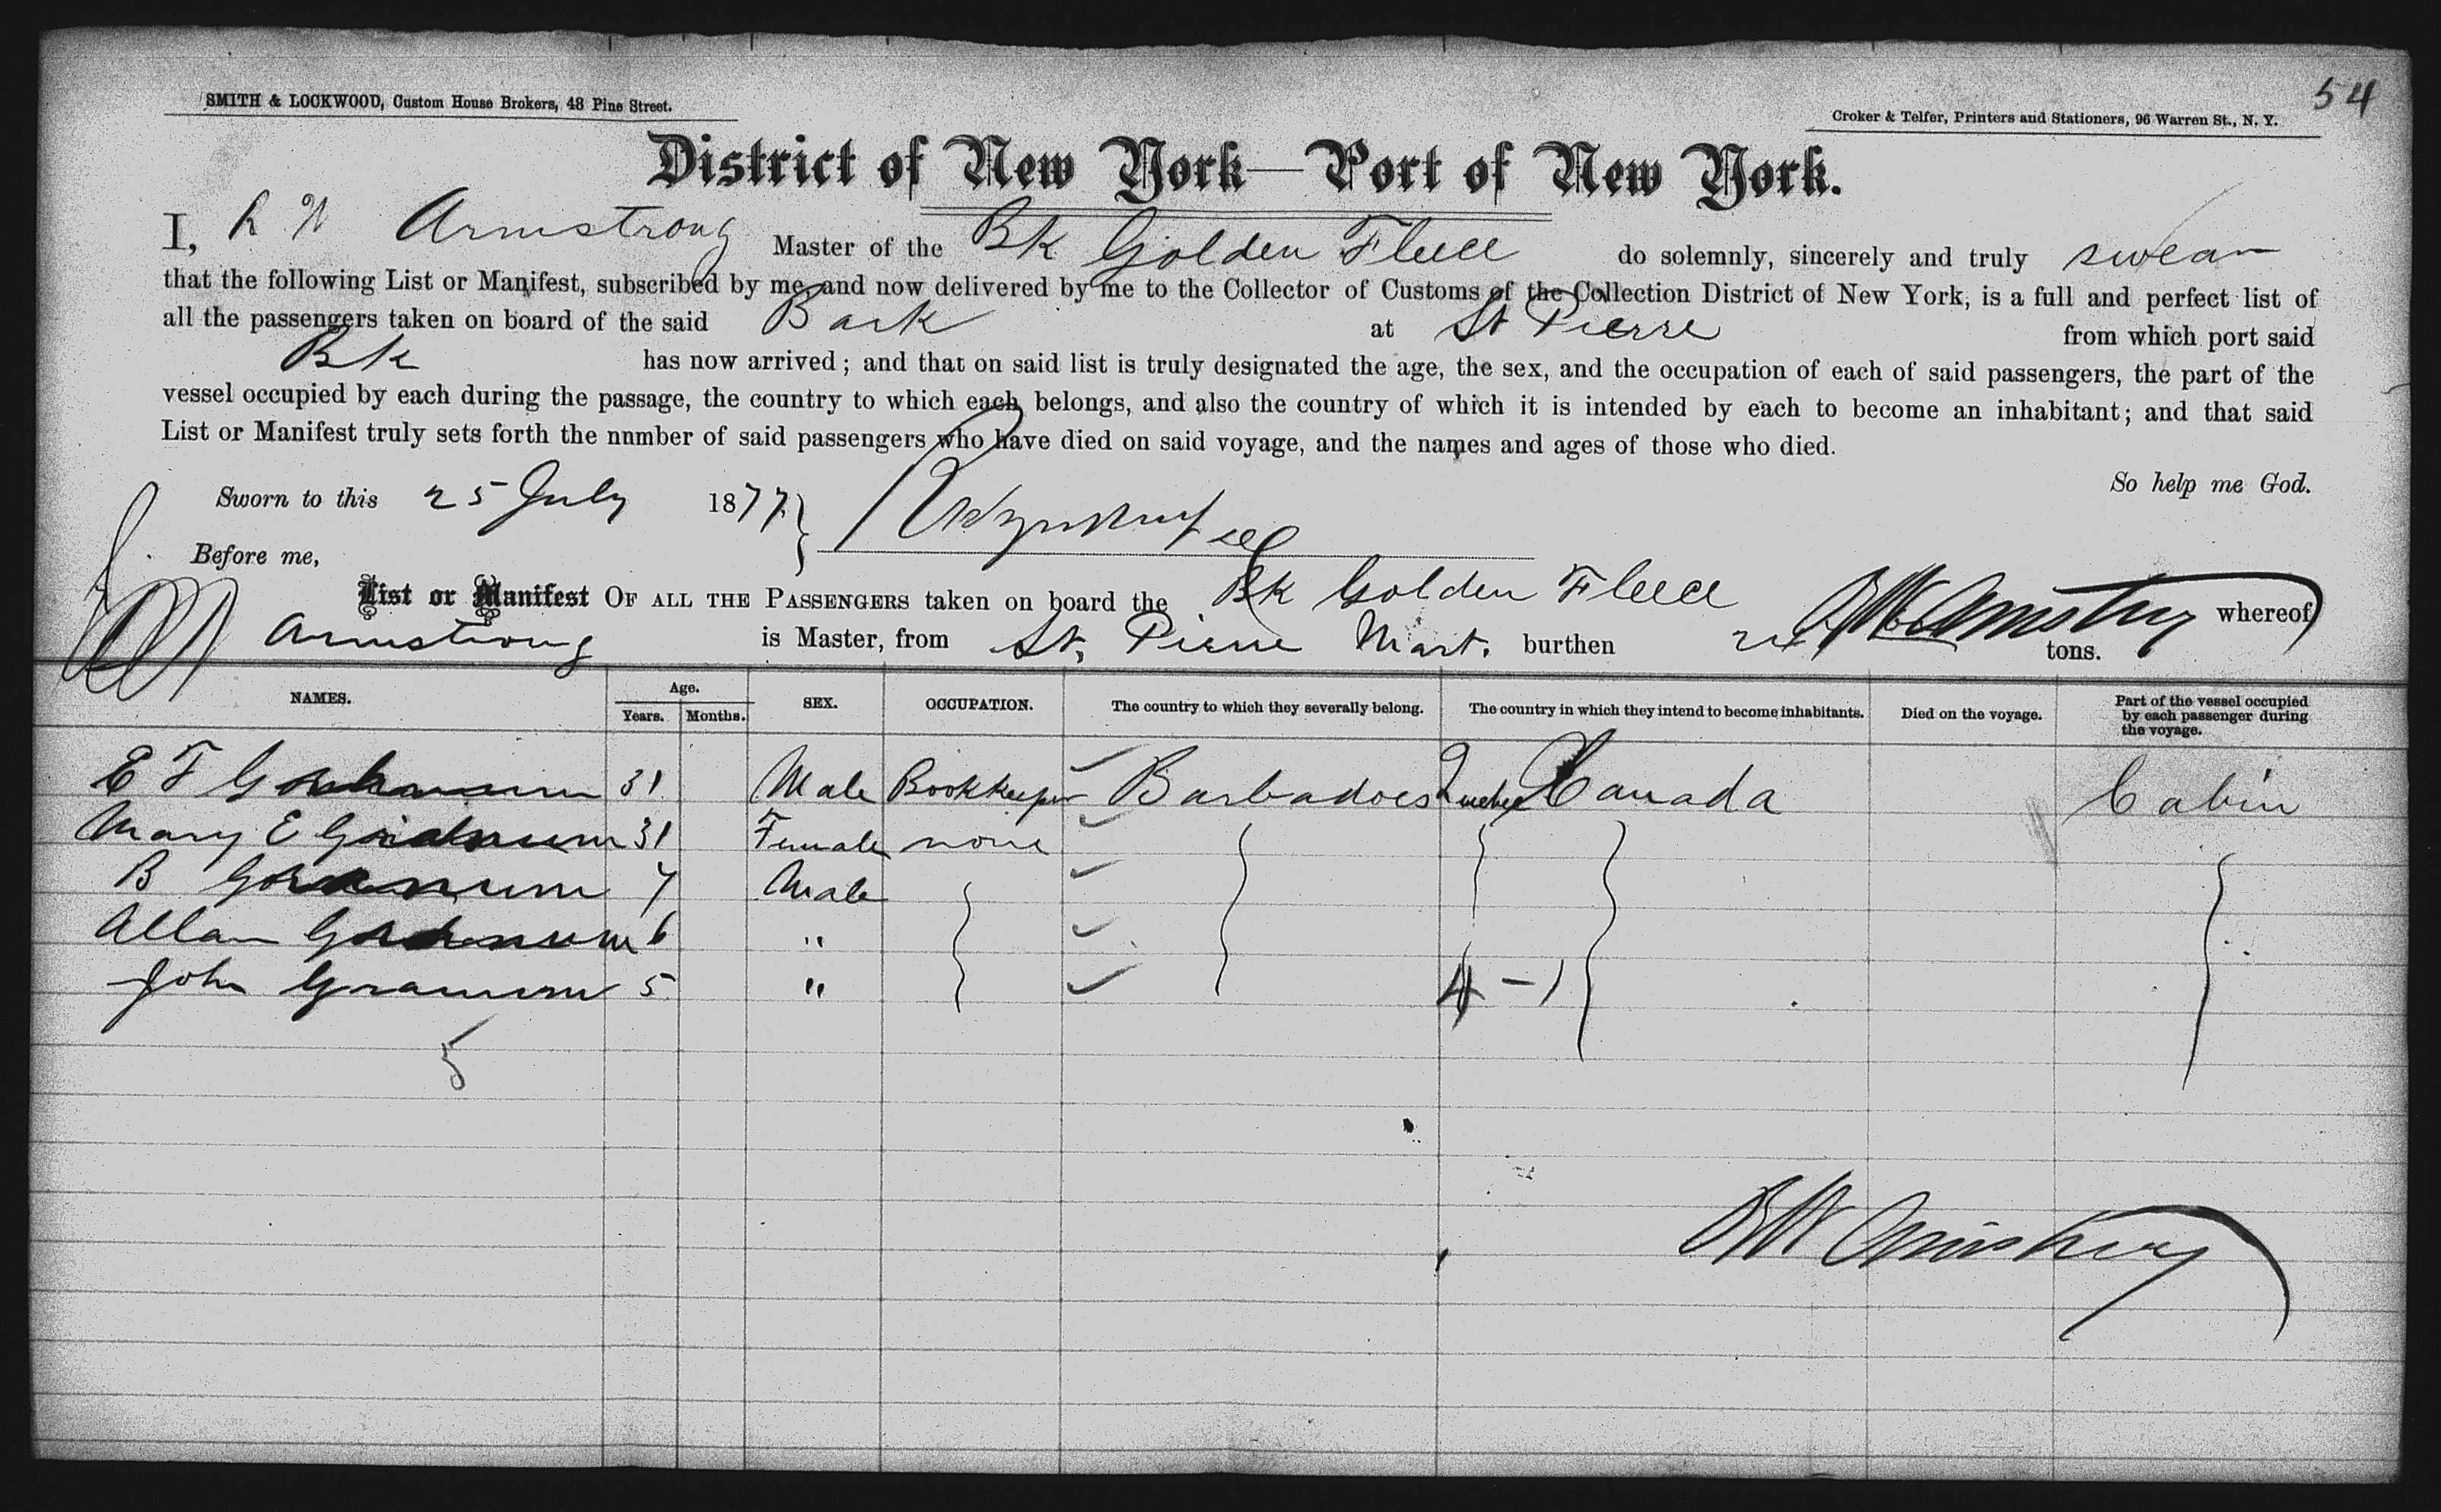 54
SMITH & LOCKWOOD, Custom House Brokers, 48 Pine Street.
Croker & Telfer, Printers and Stationers, 96 Warren St., N. Y.
District of New York—Port of New York.
I, R W Armstrong Master of the Bk Golden Fleece do solemnly, sincerely and truly swear
that the following List or Manifest, subscribed by me, and now delivered by me to the Collector of Customs of the Collection District of New York, is a full and perfect list of
all the passengers taken on board of the said Bark at St Pierre from which port said
Bk has now arrived; and that on said list is truly designated the age, the sex, and the occupation of each of said passengers, the part of the
vessel occupied by each during the passage, the country to which each belongs, and also the country of which it is intended by each to become an inhabitant; and that said
List or Manifest truly sets forth the nnmber of said passengers who have died on said voyage, and the names and ages of those who died.
So help me God.
Sworn to this 25 July 1877
Before me,
List or Manifest OF ALL THE PASSENGERS taken on board the Bk Golden Fleece whereof
R W Armstrong
Armstrong is Master, from St. Pierre Mart. burthen tons.
NAMES. Age. Years. Months. SEX. OCCUPATION. The country to which they severally belong. The country in which they intend to become inhabitants. Died on the voyage. Part of the vessel occupied by each passenger during the voyage.
E F 31 Male Bookkeeper Barbadoes Quebec Canada Cabin
Mary E 31 Female none
B 7 Male
Allan 6 "
John 5 " 4 - 1
5
R W Armstrong